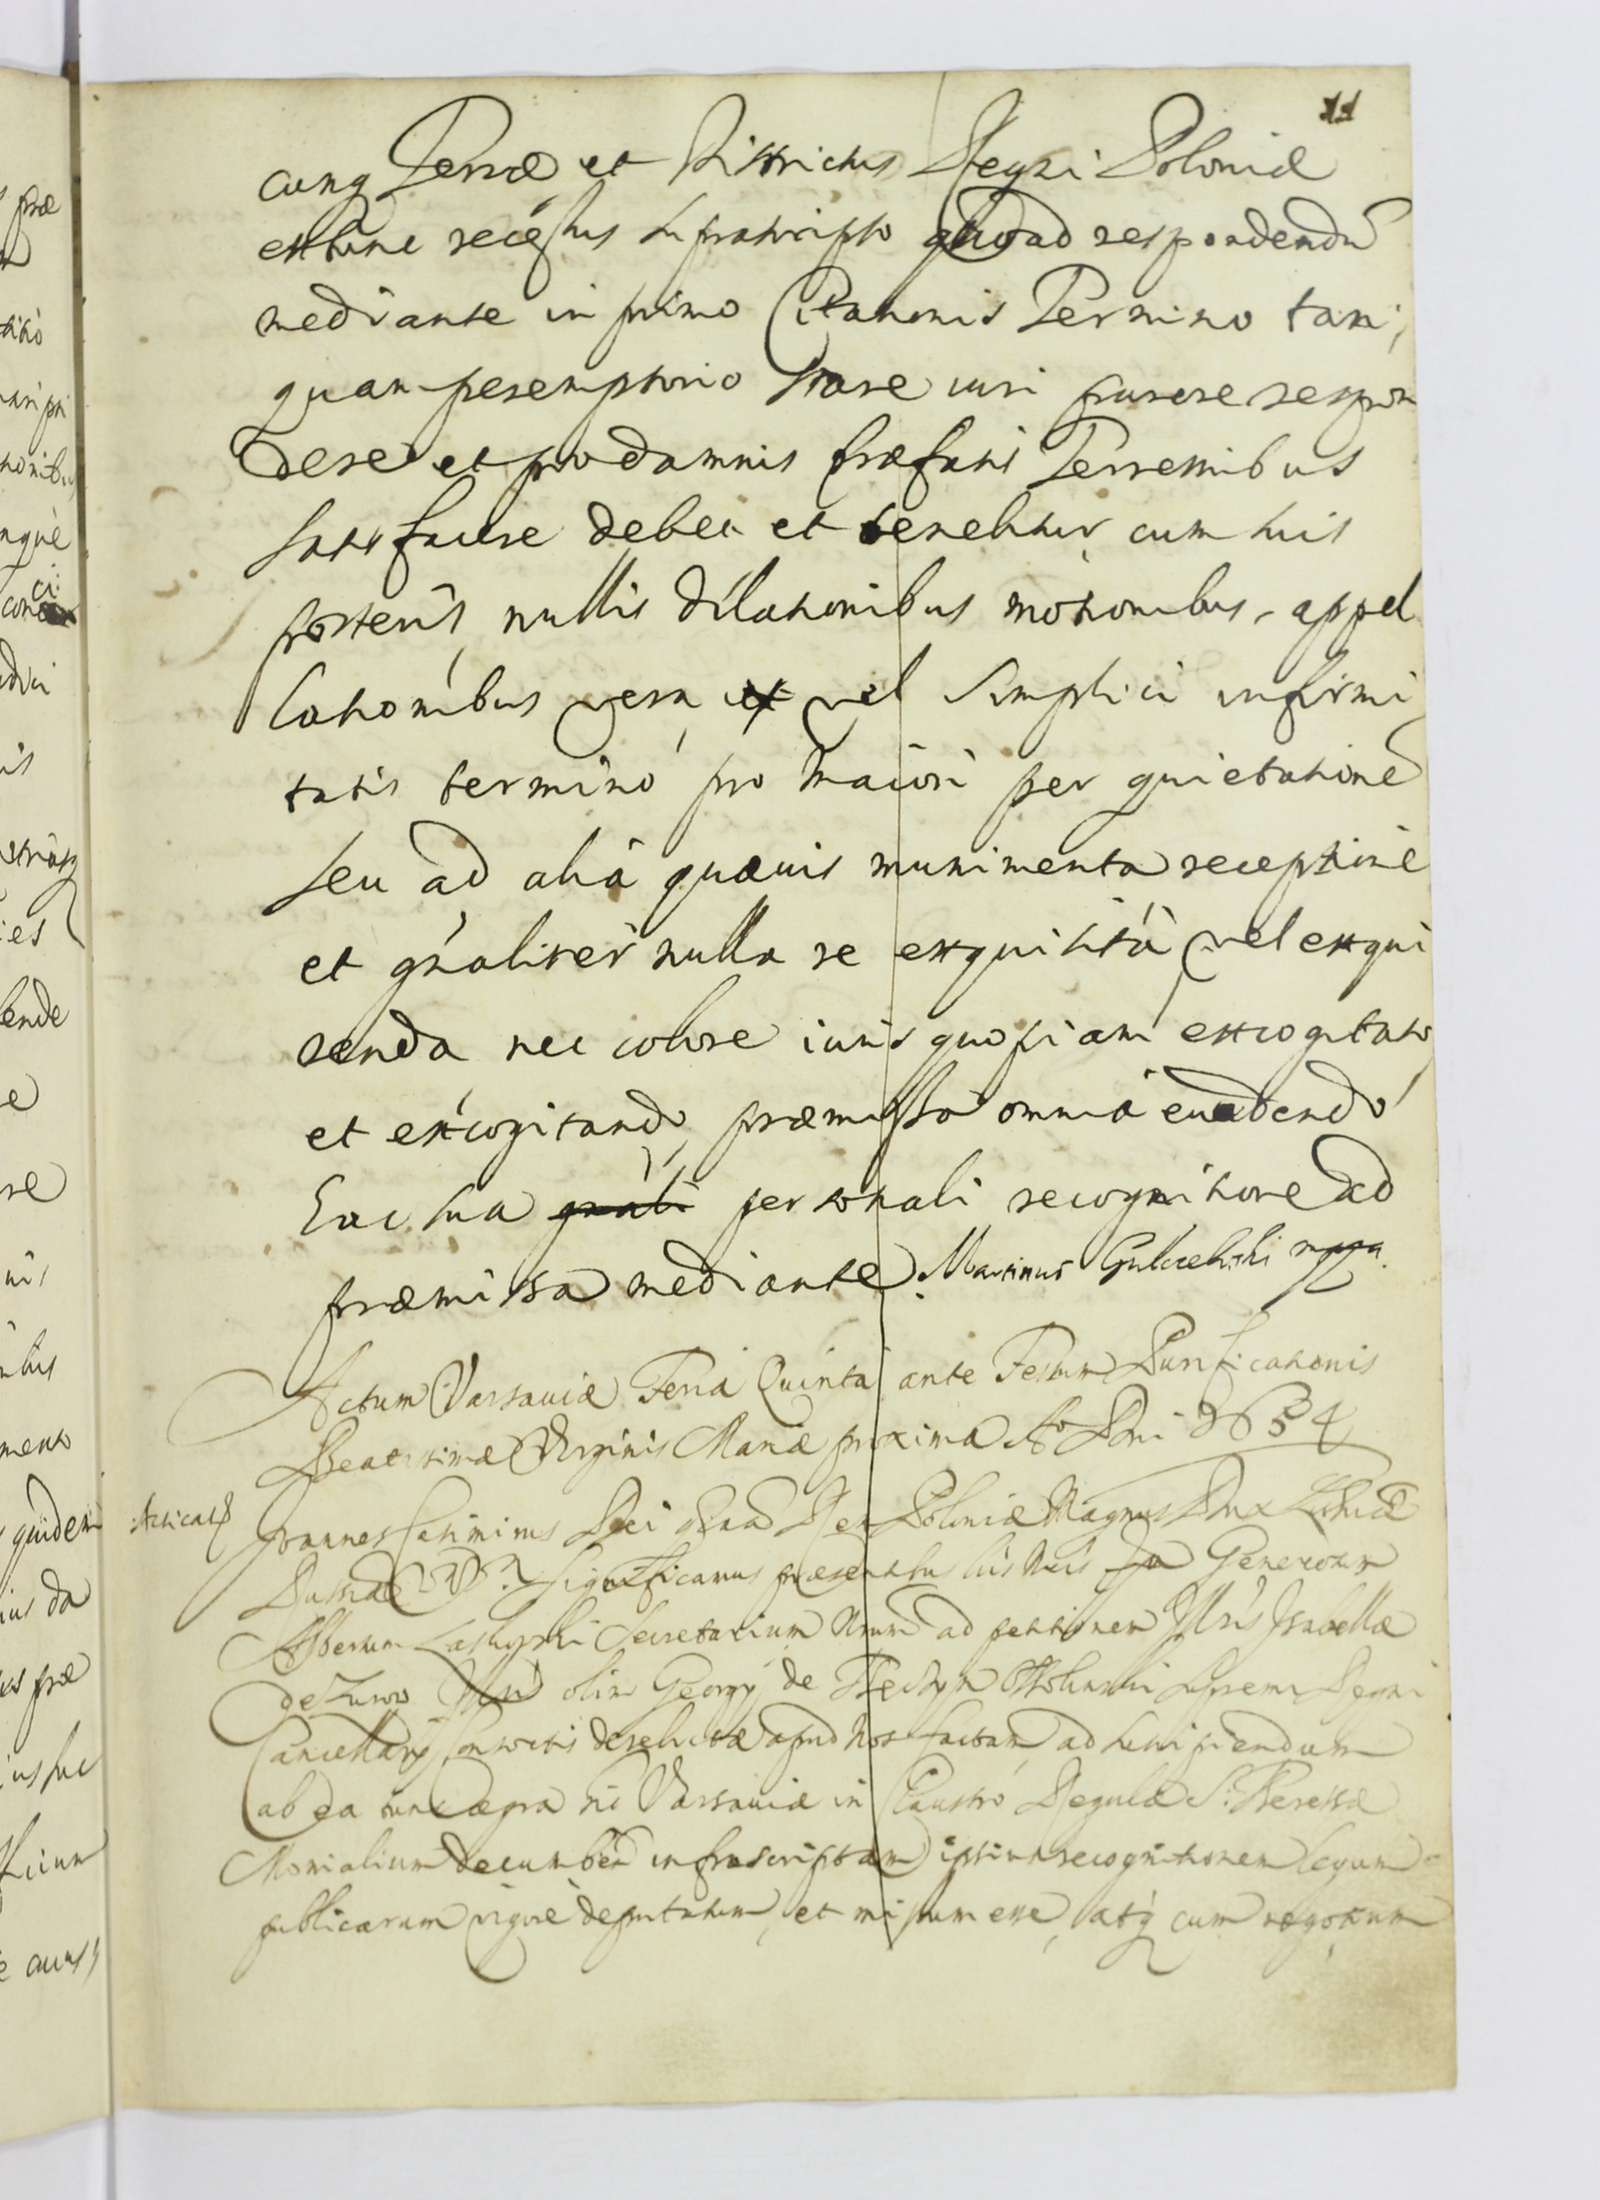 11
cunq Terræ et districtus Regni Poloniæ
ex hinc recessus suprascripto quoad respondendũ
mediante in primo Citationis Termino tam
quam peremptorio stare iuri parere respon
dere et pro damnis præfatis Terrestribus
satisfacere debet et tenebitur cum suis
posteris, nullis dilationibus motionibus, appel
lationibus vera vel simplici infirmi
tatis termino pro maiori per quietationẽ
seu ad alia quæuis munimenta receptionẽ
et gnaliter nulla re exquisita vel exqui
renda nec colore iuris quopiam excogitato
et excogitando, præmissa omnia euadendo
Hac sua gnali personali recognitione ad
præmissa mediante. Martinus mppa.
Actum Varsauiæ Feria Quinta ante Festum Purificationis
Beatissimæ Virginis Mariæ proxima Ao Dni 1654
Joannes Casimirus Dei Gratia Rex Poloniæ Magnus Dux Lithuaniæ
Russiæ Significamus præsentibus lris nris Generosum
Albertum Secretarium Nrum ad petitionem Isabellæ
de Zurow olim Georgy de Theczyn Ossolinski Supremi Regni
Cancellary Consortis derelictæ apud Nos factam, ad suscipiendum
ab ea tunc ægra hic Varsauiæ in Claustro Regulæ S. Theressæ
Monialium decumben infrascriptam ipsius recognitionem legum
publicarum vigore deputatum, et missum esse, atq cum negotium